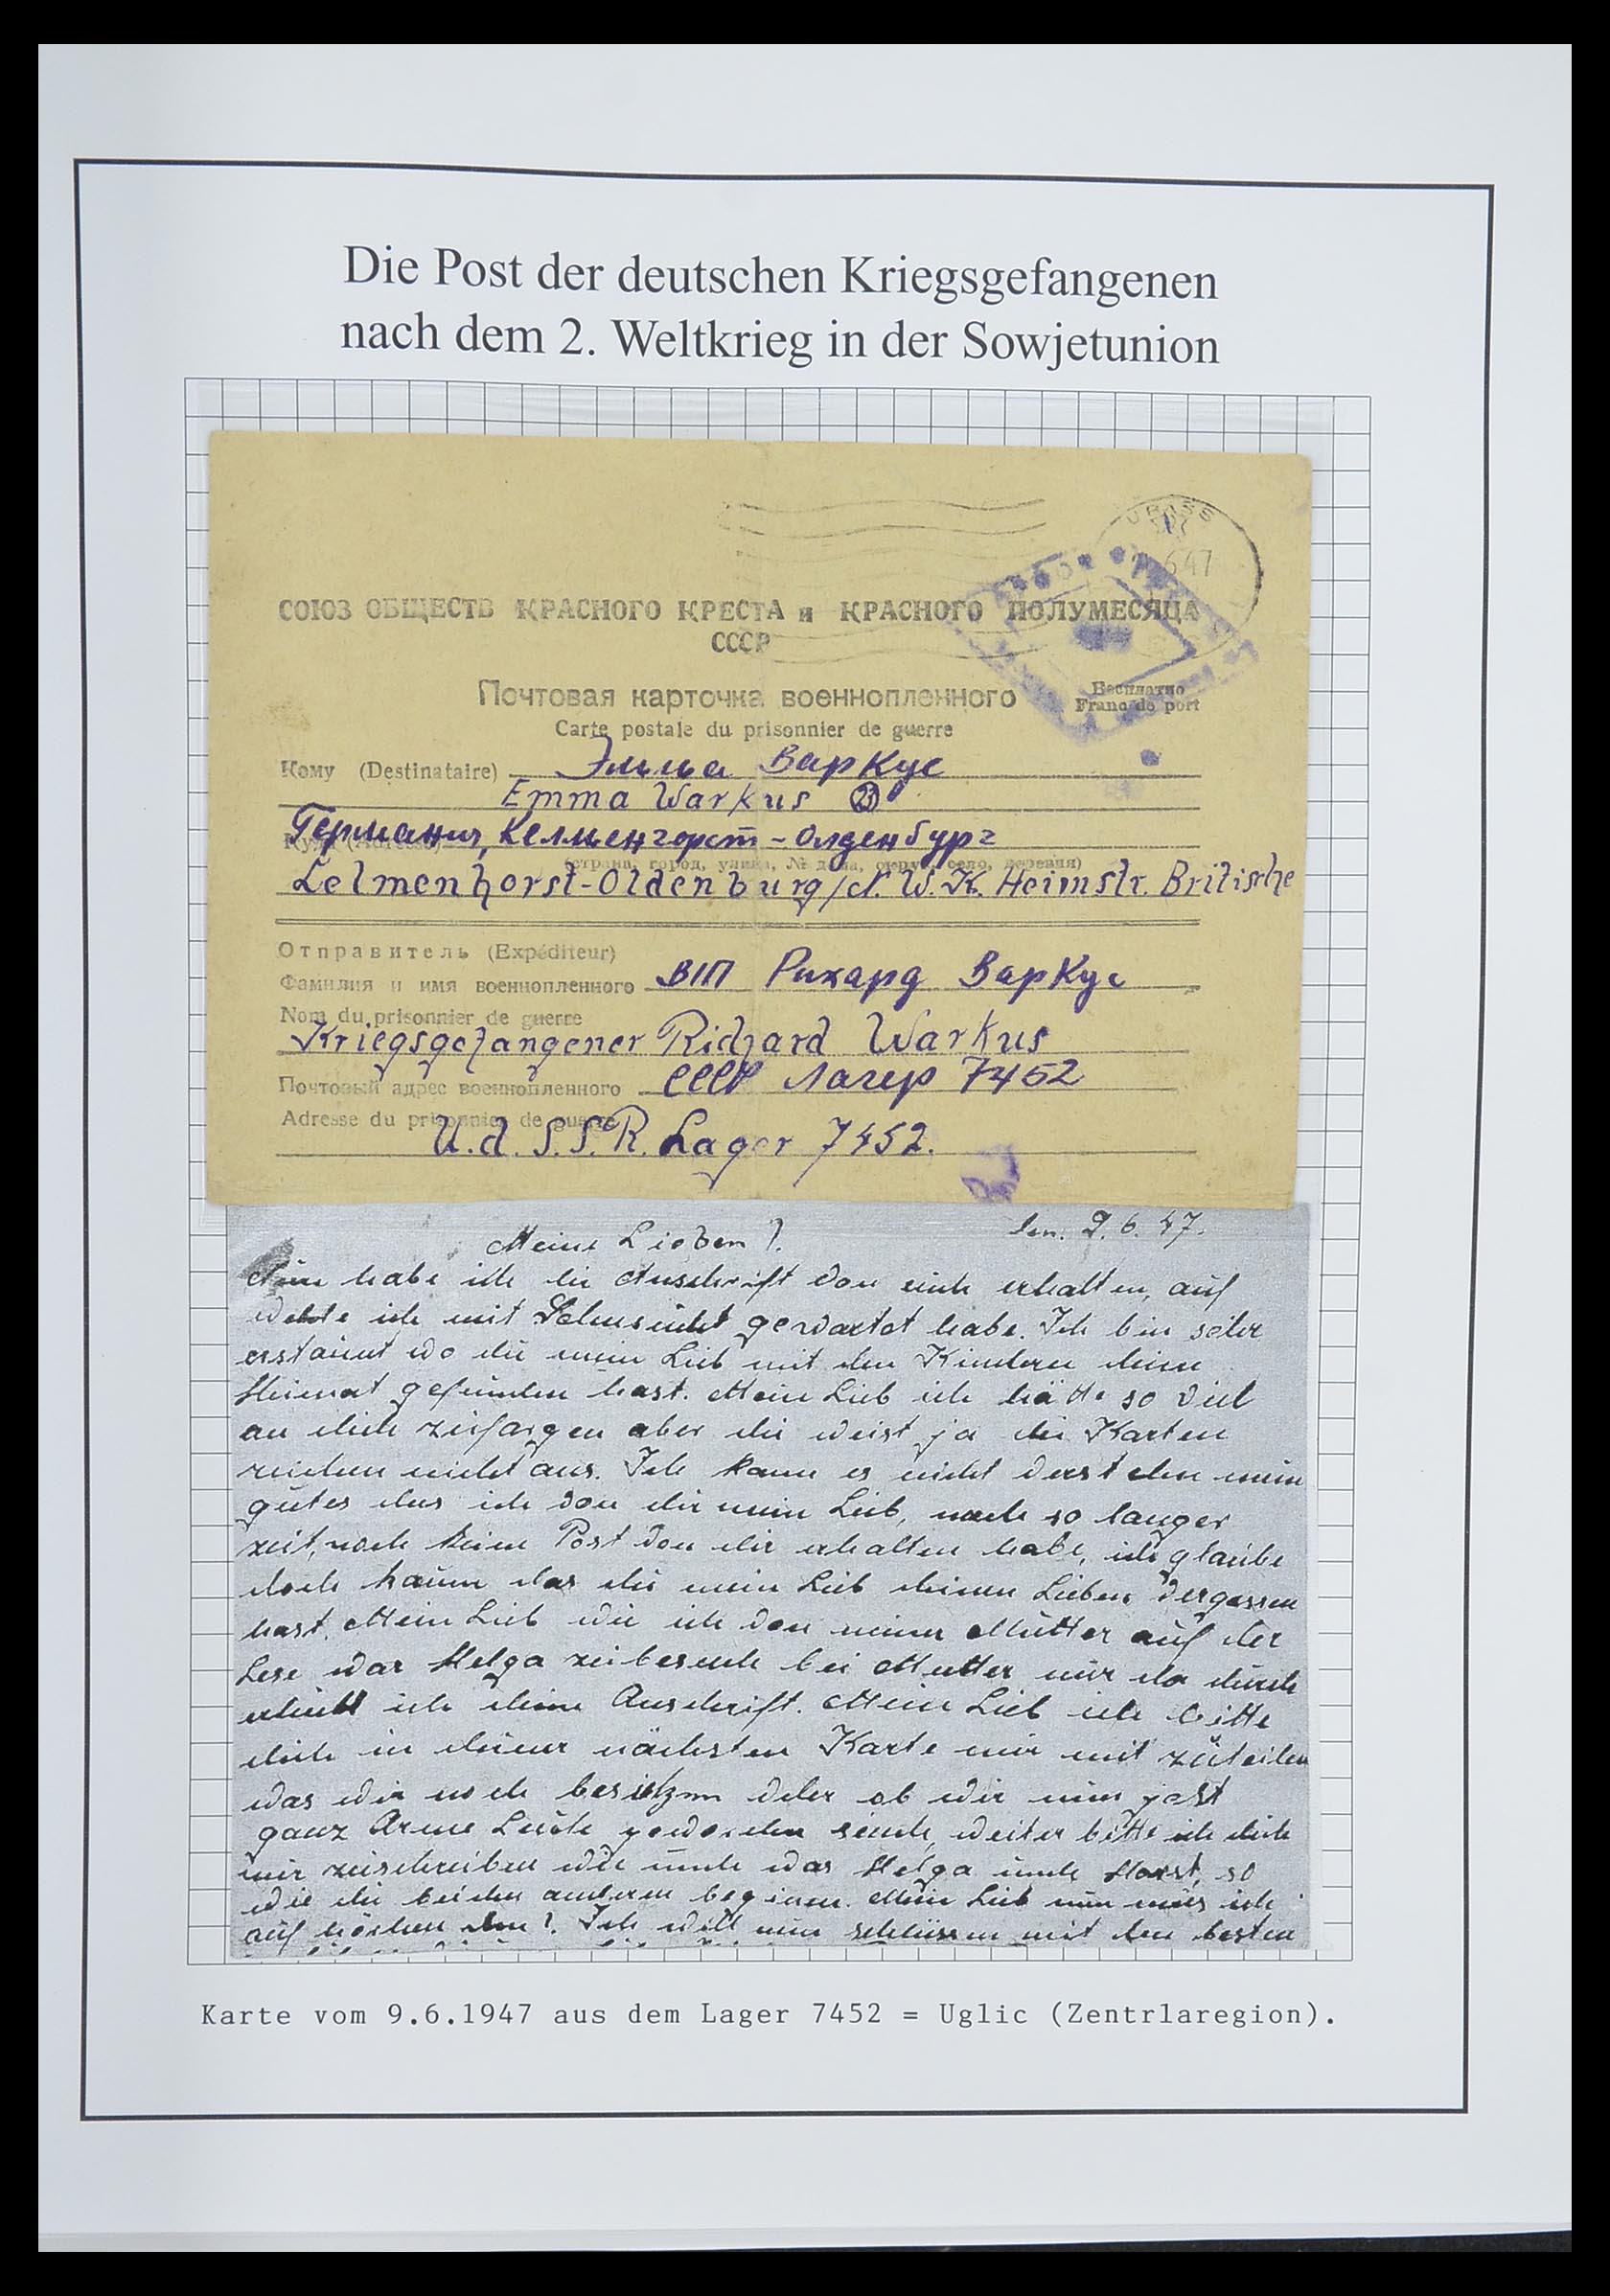 Die Post der deutschen Kriegsgefangenen
nach dem 2. Weltkrieg in der Sowjetunion
URSS
647
СОЮЗ ОБЩЕСТВ КРАСНОГО КРЕСТА и КРАСНОГО ПОЛУМЕСЯЦА
СССР
Почтовая карточка военнопленного
Бесплатно
Franc de port
Carte postale du prisonnier de guerre
Кому (Destinataire) Эмма Варкус
Emma Warkus 23
Германия, Келменгорст-Олденбург
Куда (Adresse)
(страна, город, улица, № дома, округ, село, деревня)
Lelmenhorst-Oldenburg/d. W.K. Heimstr. Britische
Отправитель (Expéditeur)
Фамилия и имя военнопленного В/П Рихард Варкус
Nom du prisonnier de guerre
Kriegsgefangener Richard Warkus
Почтовый адрес военнопленного СССР Лагер 7452
Adresse du prisonnier de guerre
U.d.S.S.R. Lager 7452.
Meine Lieben! den. 9.6.47.
Nun habe ich die Anschrift von euch erhalten, auf
welche ich mit Sehnsucht gewartet habe. Ich bin sehr
erstaunt wo du mein Lieb mit den Kindern deine
Heimat gefunden hast. Mein Lieb ich hätte so viel
an dich zufargen aber du weist ja die Karten
reichen nicht aus. Ich kann es nicht verstehn mein
gutes das ich von dir mein Lieb, nach so langer
zeit, noch keine Post von dir erhalten habe, ich glaube
doch kaum das du mein Lieb deinen Lieben vergessen
hast. Mein Lieb wie ich von meiner Mutter auf der
Lese war Helga zubesuch bei Mutter nur da durch
erhielt ich deine Anschrift. Mein Lieb ich bitte
dich in deiner nächsten Karte mir mit zuteilen
was wir noch besitzen oder ob wir nun jetzt
ganz Arme Leute geworden sind, weiter bitte ich dich
mir zuschreiben wie und was Helga und Horst, so
wie die beiden anderen beginen. Mein Lieb nun mus ich
auf hörhen den! Ich will nun schlissen mit den besten
Karte vom 9.6.1947 aus dem Lager 7452 = Uglic (Zentrlaregion).